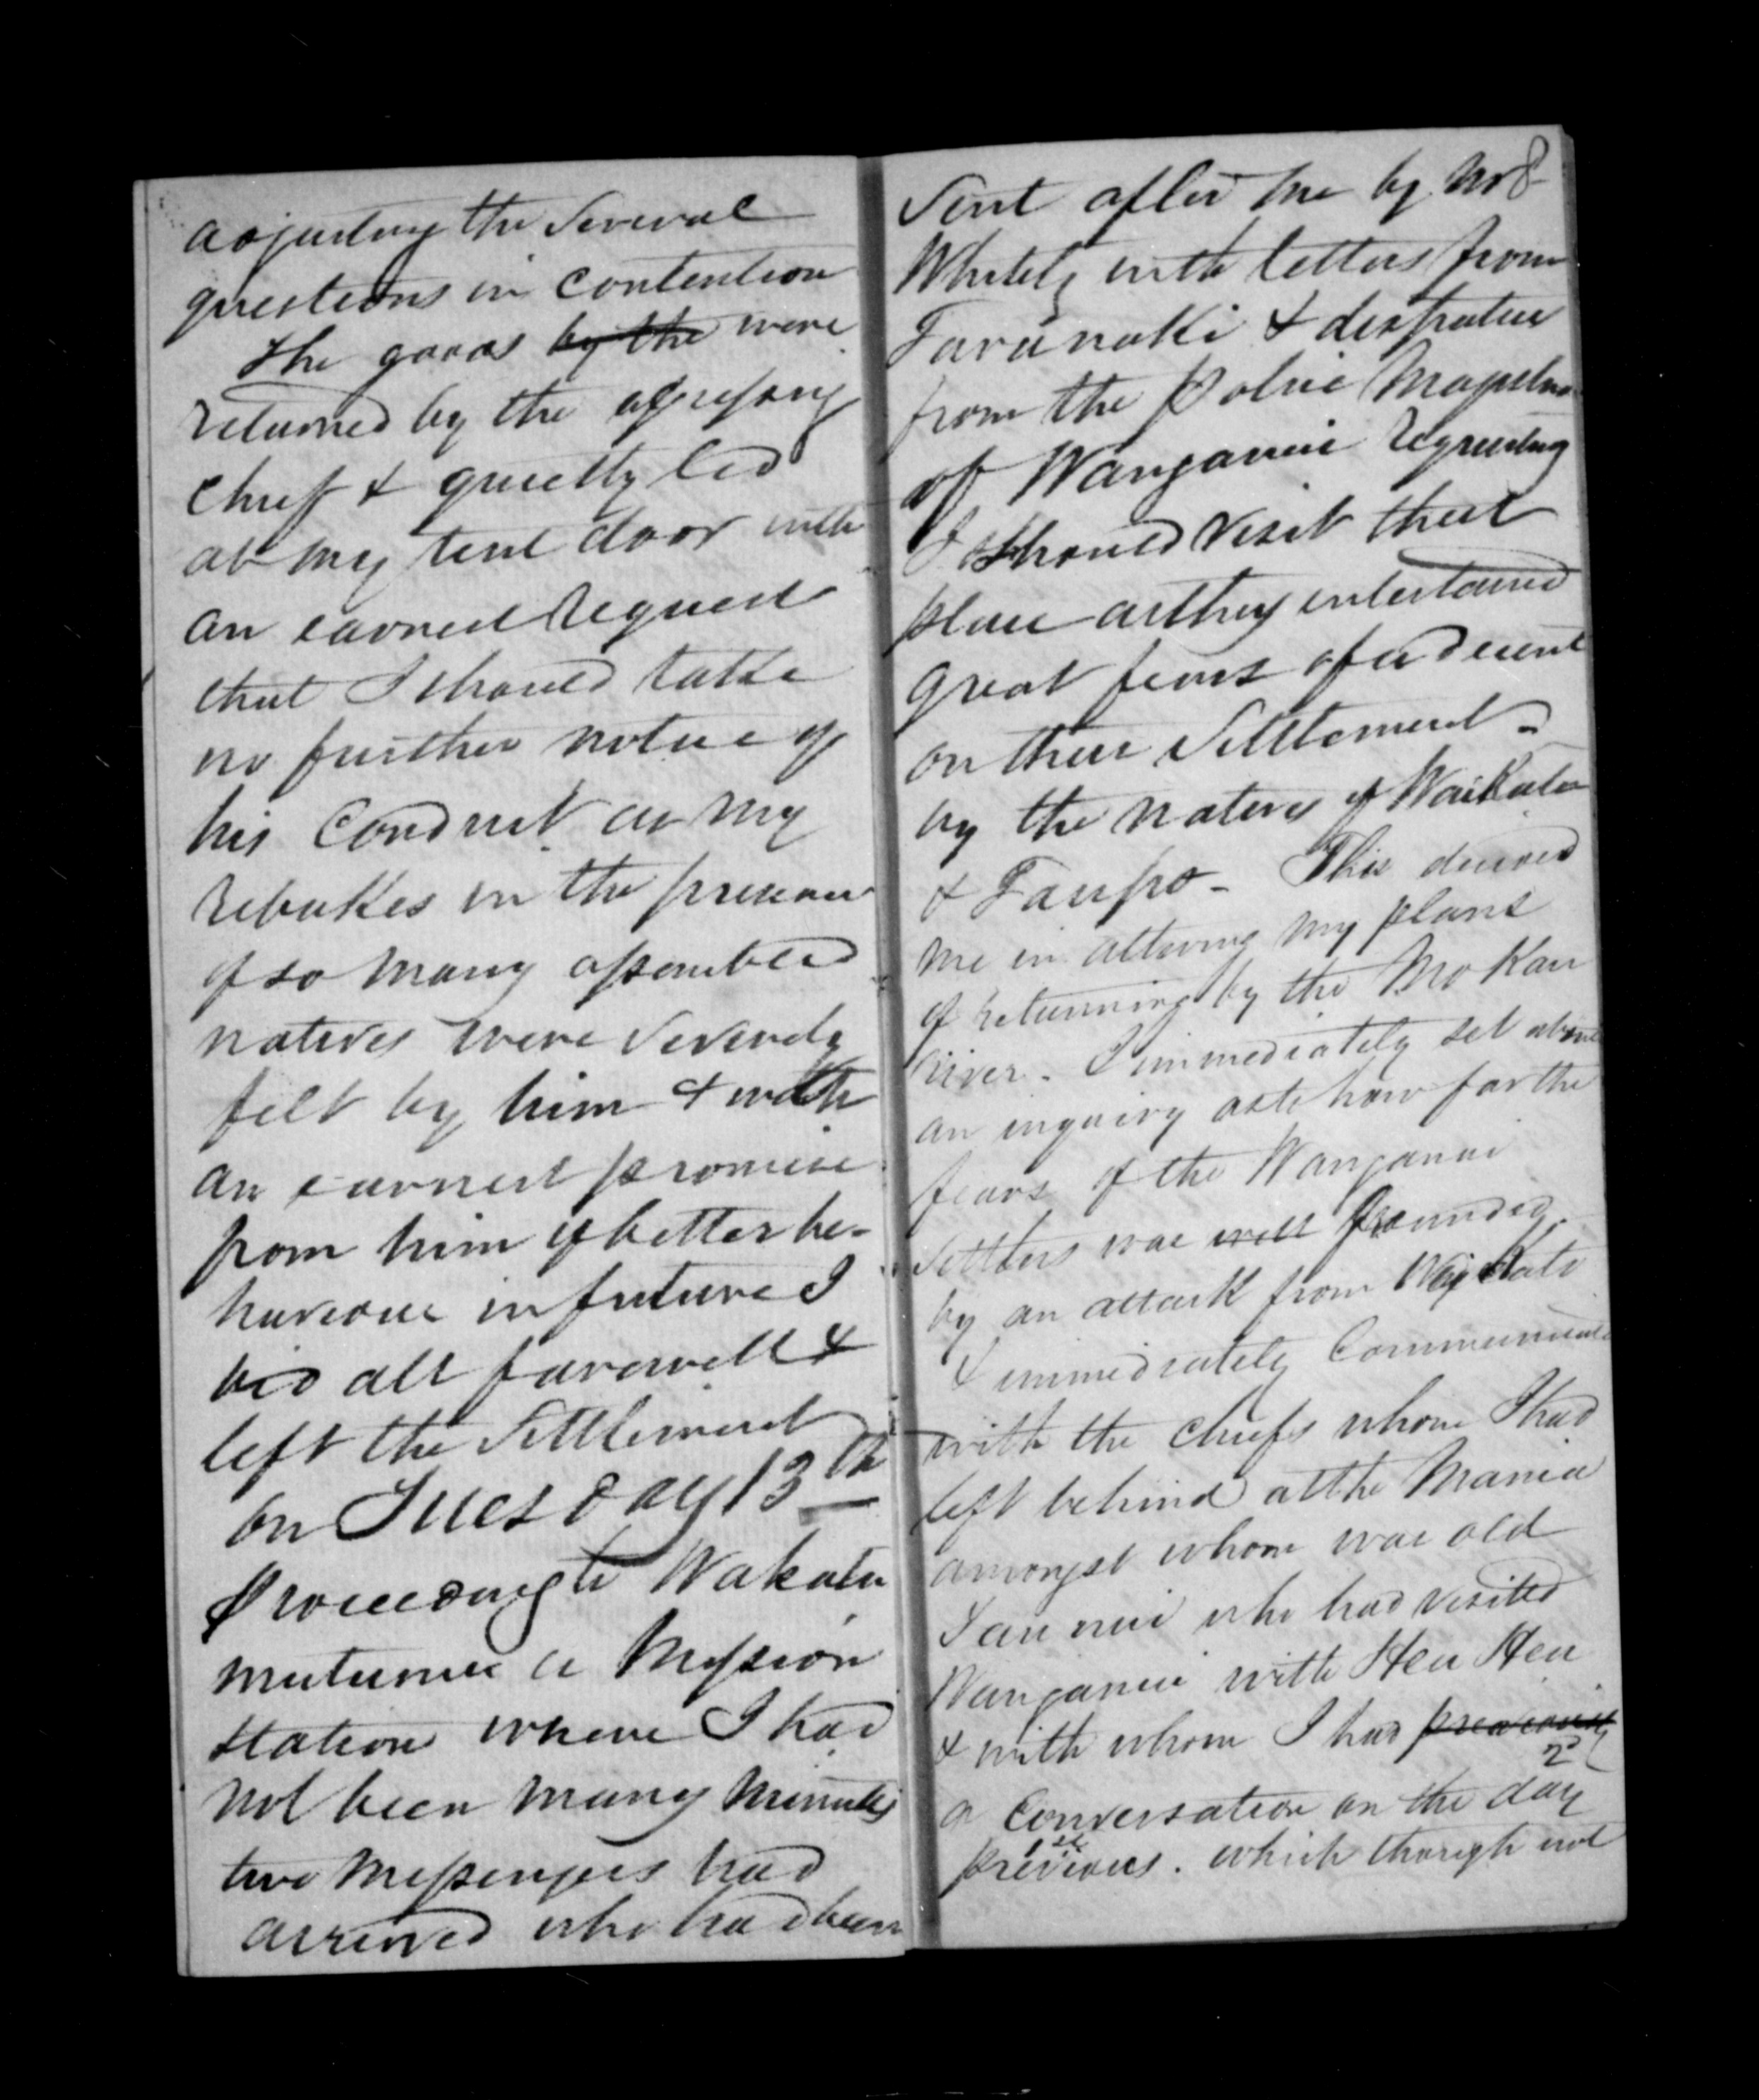 adjusting the Several
questions in contention
The goods by the were
returned by the agressing
Chief & quietly led
at my tent door with
an earnest request
that I should take
no further notice of
his Conduct as my
rebukes in the presence
of so many assembled
natives were Severely
felt by him & with
an earnest promise
from him of better be-
haviour in future I
bid all farewell &
left the Settlement
on Tuesday 13th
Proceeding to Wakatu
mutumu a Mission
Station where I had
not been many minutes
two Messengers had
arrived who had been
Sent after me by Mr
Whitely with letters from
Taranaki & despatches
from the Police Magistrate
of Wanganui requesting
I should visit that
place as they entertained
great fears of a descent
on their Settlement
by the natives of Waikato
& Taupo - This decided
me in altering my plans
of returning by the Mokau
river. I immediately set about
an inquiry as to how far the
fears of the Wanganui
Settlers was well founded
by an attack from Waikato
& immediately Communicated
with the chiefs whom I had
left behind at the Mania
amongst whom was old
Taunui who had visited
Wanganui with Heu Heu
& with whom I had previously
a Conversation on the 2d day
previous. which though not